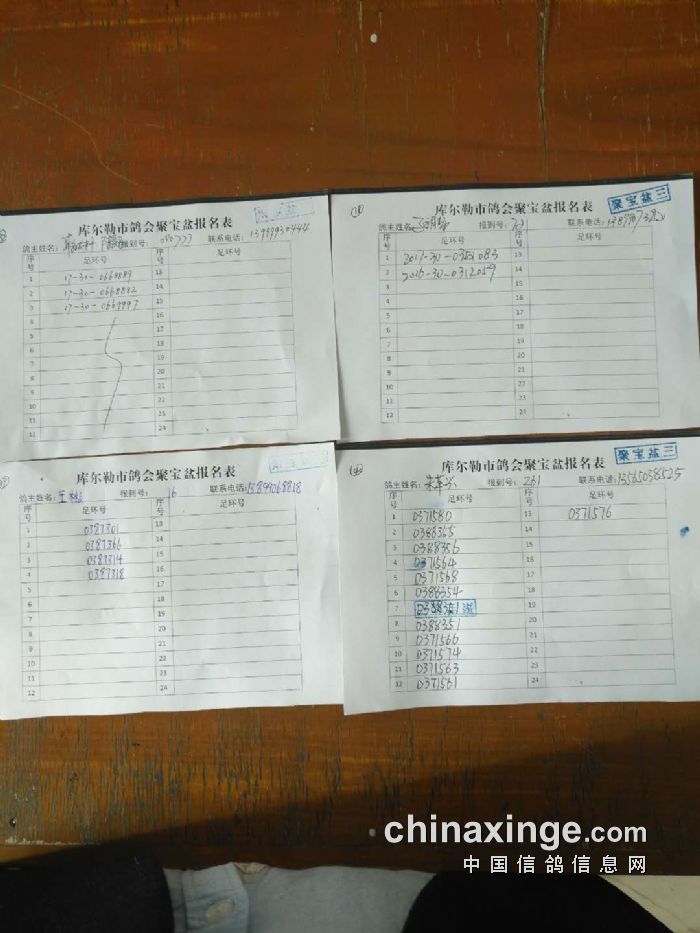 库尔勒市鸽会聚宝盆报名表
鸽主姓名: 报到号: 777 联系电话: 13999930444
序号 足环号 序号 足环号
1 17-30-0668889 13
2 17-30-0668882 14
3 17-30-0668887 15
4 16
5 17
6 18
7 19
8 20
9 21
10 22
11 23
12 24
聚宝盆三
库尔勒市鸽会聚宝盆报名表
鸽主姓名: 报到号: 联系电话:
序号 足环号 序号 足环号
1 2017-30-0351083 13
2 2016-30-0312059 14
3 15
4 16
5 17
6 18
7 19
8 20
9 21
10 22
11 23
12 24
库尔勒市鸽会聚宝盆报名表
鸽主姓名: 王 报到号: 16 联系电话: 13899068818
序号 足环号 序号 足环号
1 0387301 13
2 0387366 14
3 0387314 15
4 0387318 16
5 17
6 18
7 19
8 20
9 21
10 22
11 23
12 24
聚宝盆三
库尔勒市鸽会聚宝盆报名表
鸽主姓名: 朱 报到号: 261 联系电话: 13565038525
序号 足环号 序号 足环号
1 0371580 13 0371576
2 0388355 14
3 0388356 15
4 0371564 16
5 0371568 17
6 0388354 18
7 19
8 0388351 20
9 0371566 21
10 0371574 22
11 0371563 23
12 0371561 24
chinaxinge.com
中国信鸽信息网